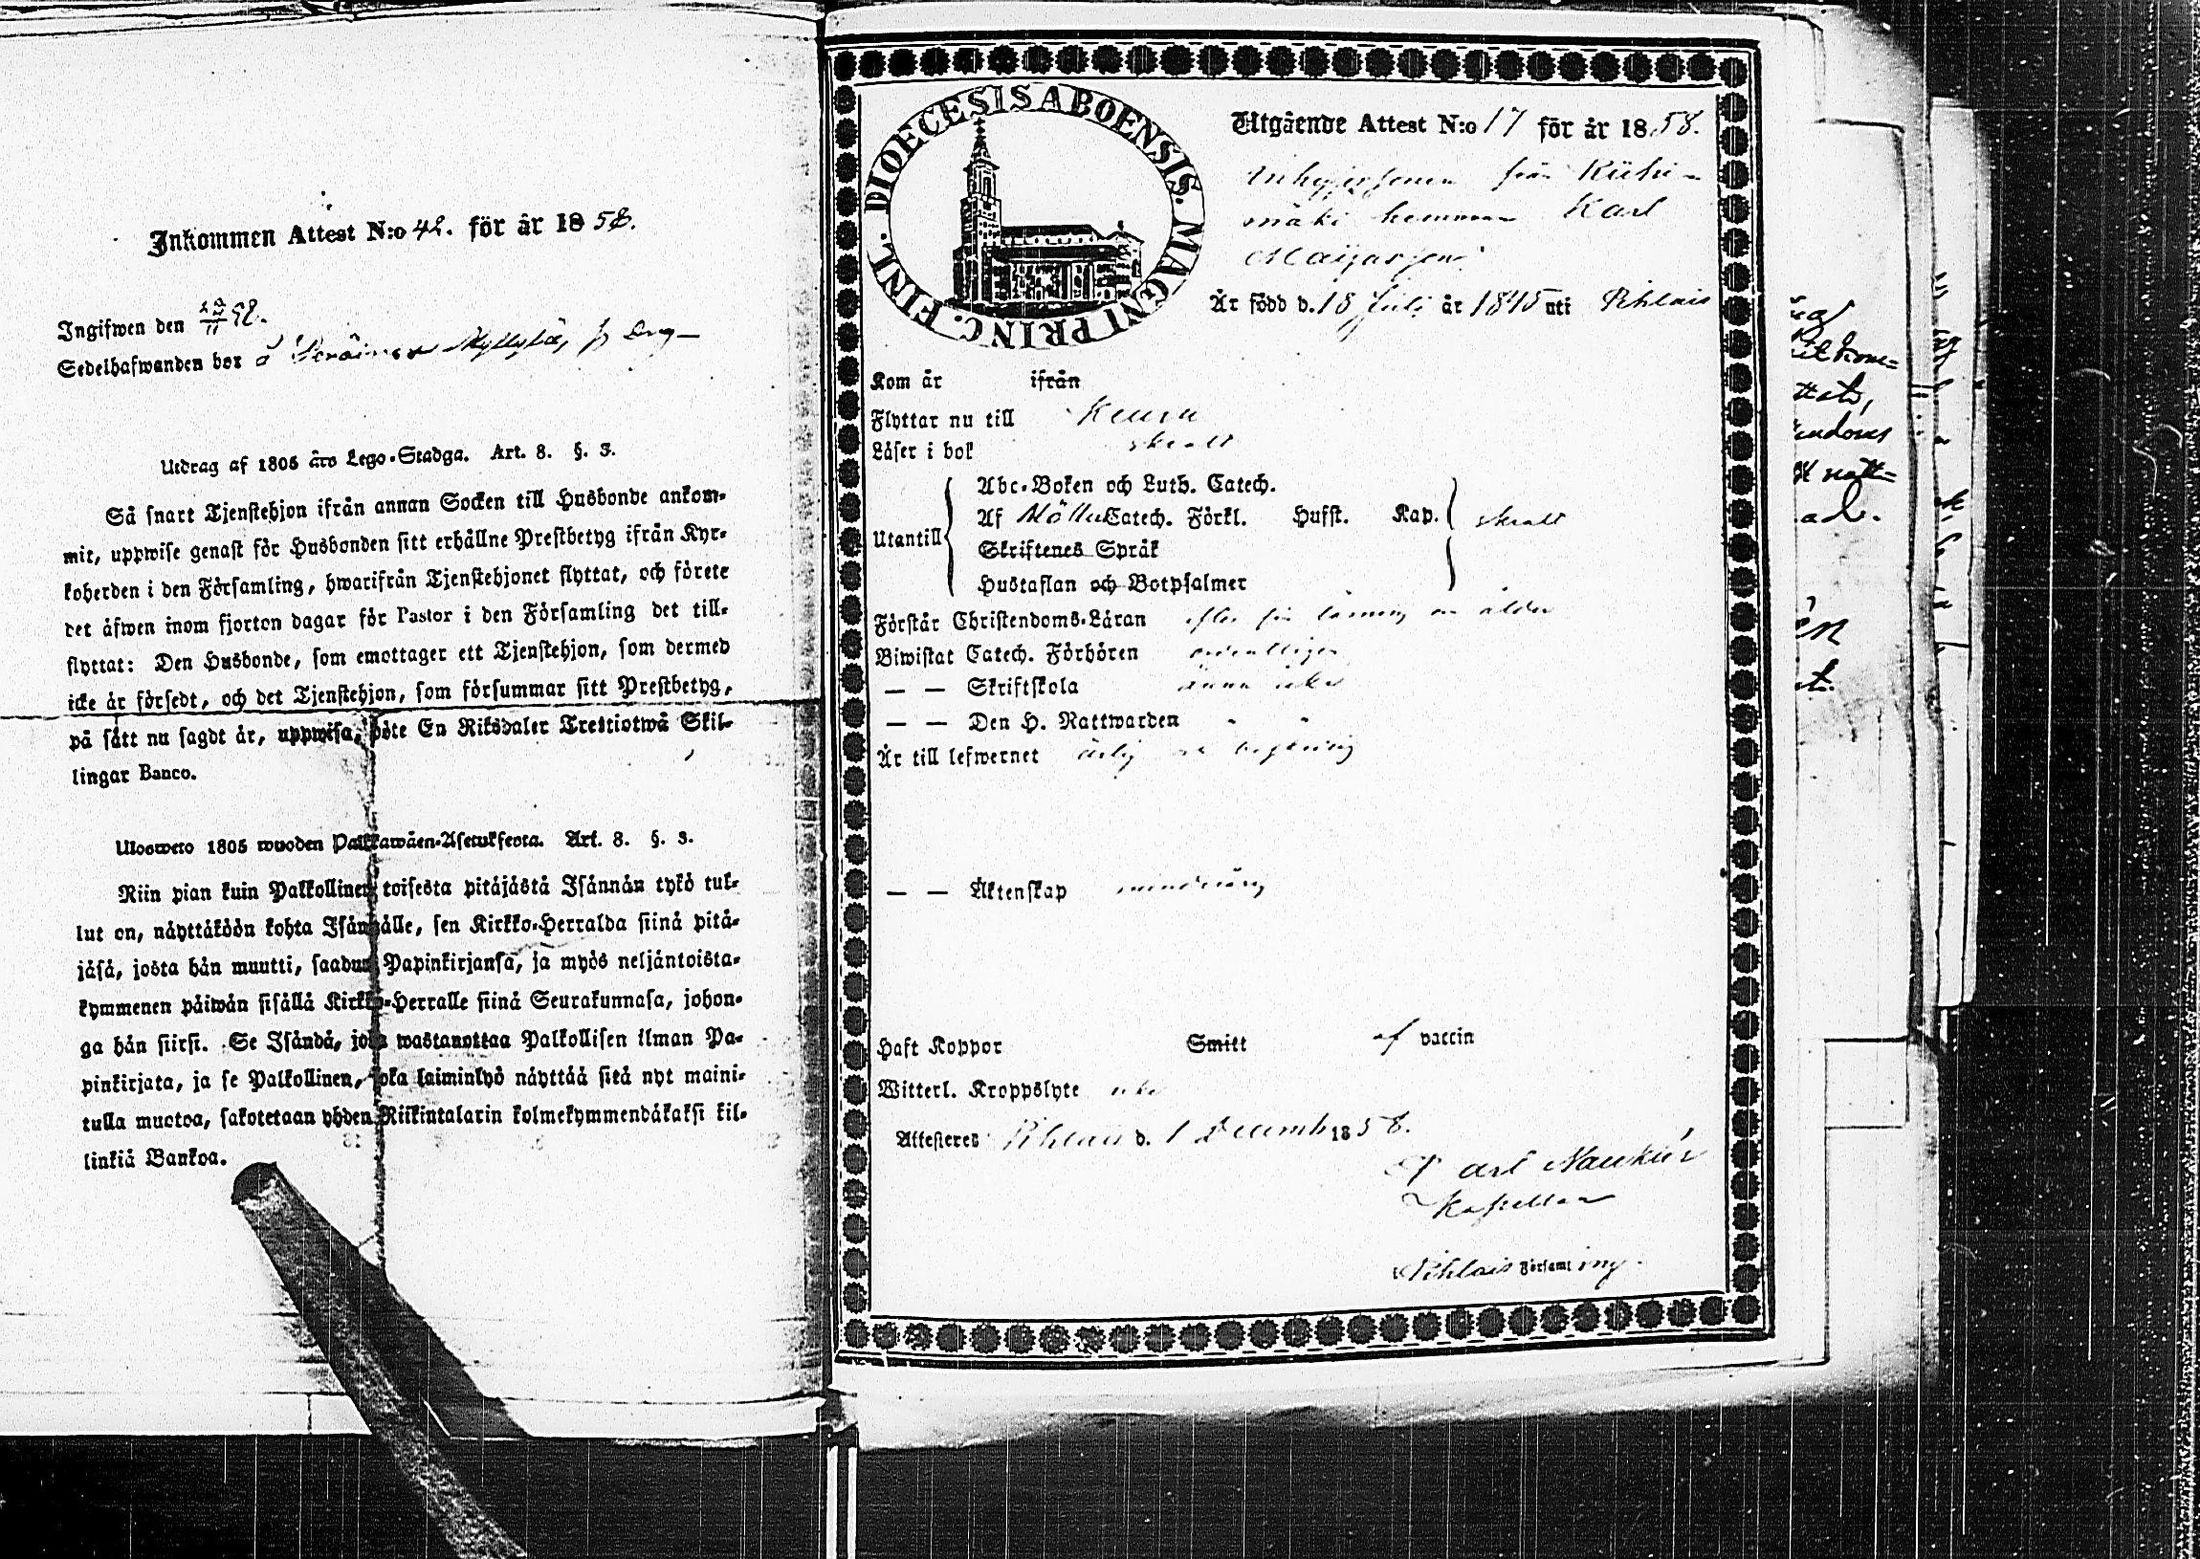 Inkommen Attest N:o 42. för år 1858.
Ingifwen den
Sedelhafwanden bor å
Utdrag af 1805 års Lego-Stadga. Art. 8. §. 3.
Så snart Tjenstehjon ifrån annan Socken till Husbonde ankom-
mit, uppwise genast för Husbonden sitt erhållne Prestbetyg ifrån Kyr-
koherden i den Församling, hwarifrån Tjenstehjonet flyttat, och förete
det äfwen inom fjorton dagar för Pastor i den Församling det till-
flyttat: Den Husbonde, som emottager ett Tjenstehjon, som dermed
icke är försedt, och det Tjenstehjon, som försummar sitt Prestbetyg,
på sätt nu sagdt är, uppwisa, böte En Riksdaler Trettiotwå Skil-
lingar Banco.
Ulosweto 1805 wuoden Palkkawäen-Asetuksesta. Art. 8. §. 3.
Niin pian kuin Palkollinen toisesta pitäjästä Isännän tykö tul-
lut on, näyttäköön kohta Isännälle, sen Kirkko-Herralda siinä pitä-
jäsä, josta hän muutti, saadun Papinkirjansa, ja myös neljäntoista-
kymmenen päiwän sisällä Kirkko-Herralle siinä Seurakunnasa, johon-
ga hän siirsi. Se Isändä, joka wastanottaa Palkollisen ilman Pa-
pinkirjata, ja se Palkollinen, joka laiminlyö näyttää sitä nyt maini-
tulla muotoa, sakotetaan yhden Riikintalarin kolmekymmendäkaksi kil-
linkiä Bankoa.
DIOECESIS ABOENSIS. MAGNI PRINC. FINL.
Utgående Attest N:o 17 för år 1858.
från
mäki hemman Karl
Är född d. 18 Juli år 1845 uti Pihlais
Kom år ifrån
Flyttar nu till Keuru
Läser i bok skralt
Abc-Boken och Luth. Catech.
Utantill Af Möllers Catech. Förkl. Husst. Kap. skralt
Skriftenes Språk
Hustaflan och Botpsalmer
Förstår Christendoms-Läran efter sin ålder
Biwistat Catech. Förhören ordentligen
— — Skriftskola ännu icke
— — Den H. Nattwarden
Är till lefwernet ärlig och
— — Äktenskap minderårig
Haft Koppor Smitt af vaccin
Witterl. Kroppslyte icke
Attesteras Pihlais d. 1 Decemb 1858.
Carl
Kapellan
Pihlais Församling.